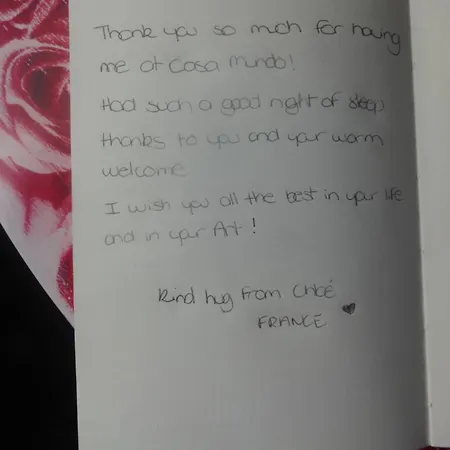 Thank you so much for having
me at Casa Mundo!
Had such a good night of sleep
thanks to you and your warm
welcome
I wish you all the best in your life
and in your Art!
Kind hug from Chloé
FRANCE ♥